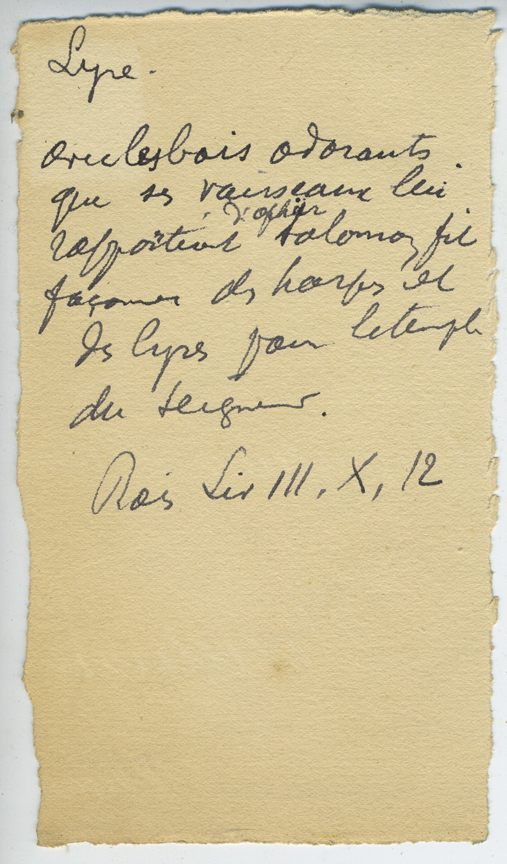 Lyre.
avec les bois odorants
que ses vaisseaux lui
d'ophir
rapportent Salomon fit
façonner des harpes et
des lyres pour le temple
du Seigneur.
Rois Liv III, X, 12